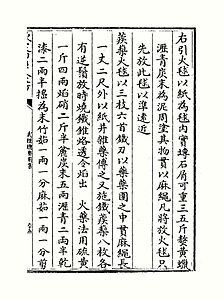 右引火毬以紙為毬內實塼石屑可重三五斤熬黃蠟
瀝青炭末為泥周塗其物貫以麻繩凡將放火毬只
先放此毬以準遠近
蒺藜火毬以三枝六首鐵刀以藥藥團之中貫麻繩長
一丈二尺外以紙并雜藥傅之又施鐵蒺藜八枚各
有逆鬚放時燒鐵錐烙透令焰出 火藥法用硫黃
一斤四兩焰硝二斤半麄炭末五兩瀝青二兩半乾
漆二兩半擣為末竹茹一兩一分麻茹一兩一分剪